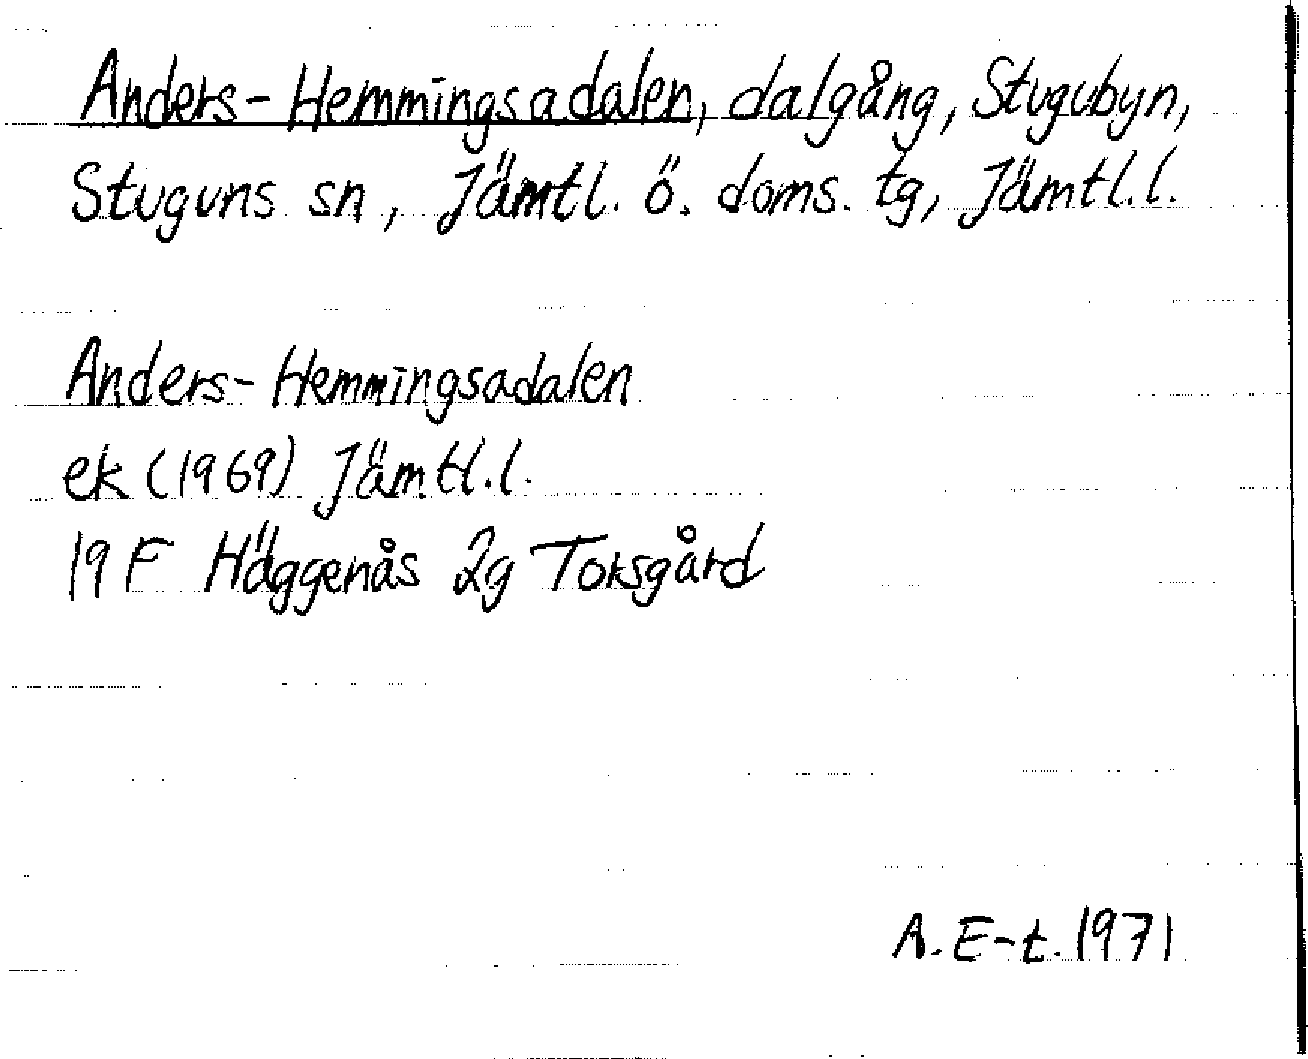 Anders-Hemmingsadalen, dalgång, Stugubyn,
Stuguns sn, Jämtl. ö. doms. tg, Jämtl.l.
Anders-Hemmingsadalen
ek (1969) Jämtl.l.
19 F Häggenås 2g Torsgård
A. E-t. 1971